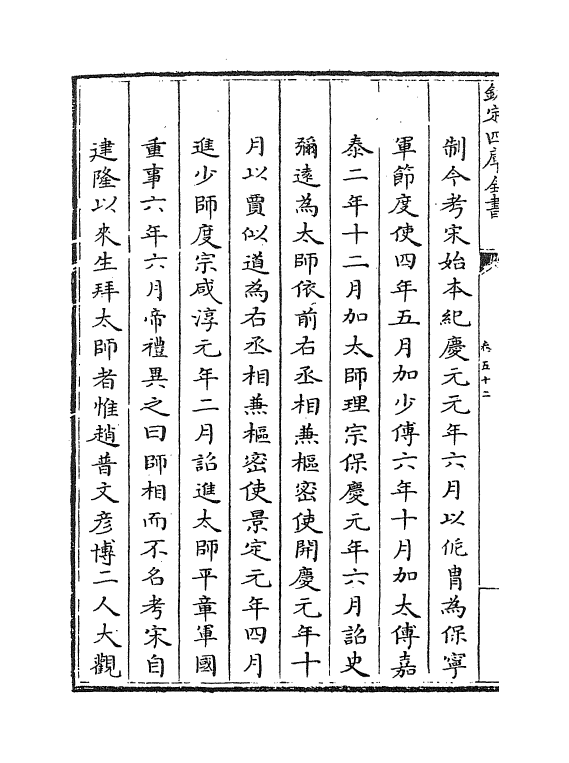 欽定四庫全書
卷五十二
制今考宋始本紀慶元元年六月以侂冑為保寧
軍節度使四年五月加少傅六年十月加太傅嘉
泰二年十二月加太師理宗保慶元年六月詔史
彌遠為太師依前右丞相兼樞密使開慶元年十
月以賈似道為右丞相兼樞密使景定元年四月
進少師度宗咸淳元年二月詔進太師平章軍國
重事六年六月帝禮異之曰師相而不名考宋自
建隆以來生拜太師者惟趙普文彦博二人大觀